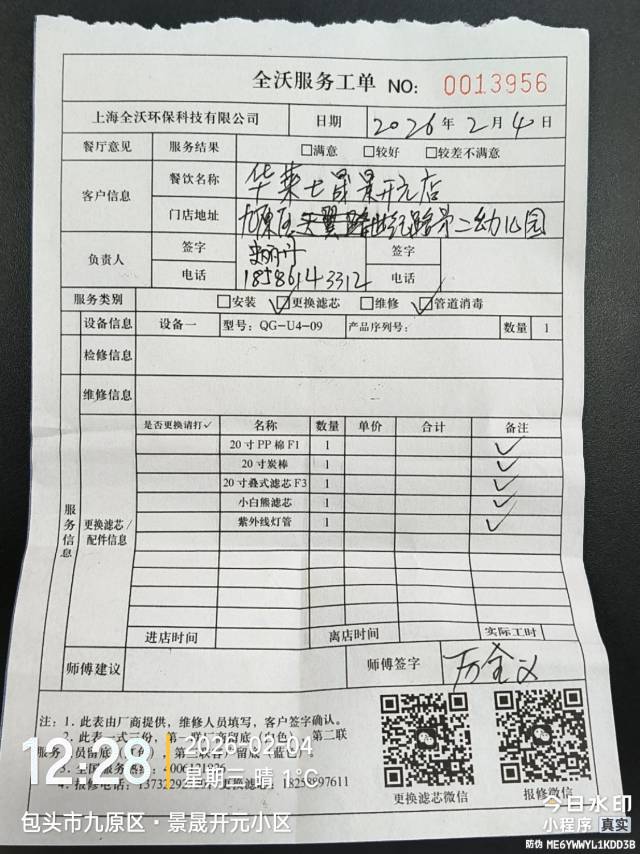 全沃服务工单 NO: 0013956
上海全沃环保科技有限公司 日期 2026年2月4日
餐厅意见 服务结果 □满意 □较好 □较差不满意
客户信息 餐饮名称 华莱士晟景开元店
门店地址 九原区世纪路第二幼儿园
负责人 签字 签字
电话 18586143312 电话
服务类别 □安装 ☑更换滤芯 □维修 ☑管道消毒
设备信息 设备一 型号: QG-U4-09 产品序列号: 数量 1
检修信息
维修信息
服务信息
更换滤芯/配件信息
是否更换请打✓ 名称 数量 单价 合计 备注
20寸PP棉F1 1 ✓
20寸炭棒 1 ✓
20寸叠式滤芯F3 1 ✓
小白熊滤芯 1 ✓
紫外线灯管 1 ✓
进店时间 离店时间 实际工时
师傅建议 师傅签字
注: 1. 此表由厂商提供, 维修人员填写, 客户签字确认。
2. 此表一式三份, 第一联厂商留底 第二联
服务人员留底 第三联客户留底 蓝色
3. 全国服务热线:
4. 报修电话: 更换滤芯:
更换滤芯微信 报修微信
12:28
2026-02-04
星期三 晴 1°C
包头市九原区·景晟开元小区
今日水印
小程序 真实
防伪 ME6YWWYL1KDD3B